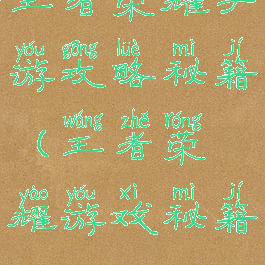 王者荣耀手
yóu gōng lüè mì jí
游攻略秘籍
wáng zhě róng
(王者荣
yào yóu xì mì jí
耀游戏秘籍